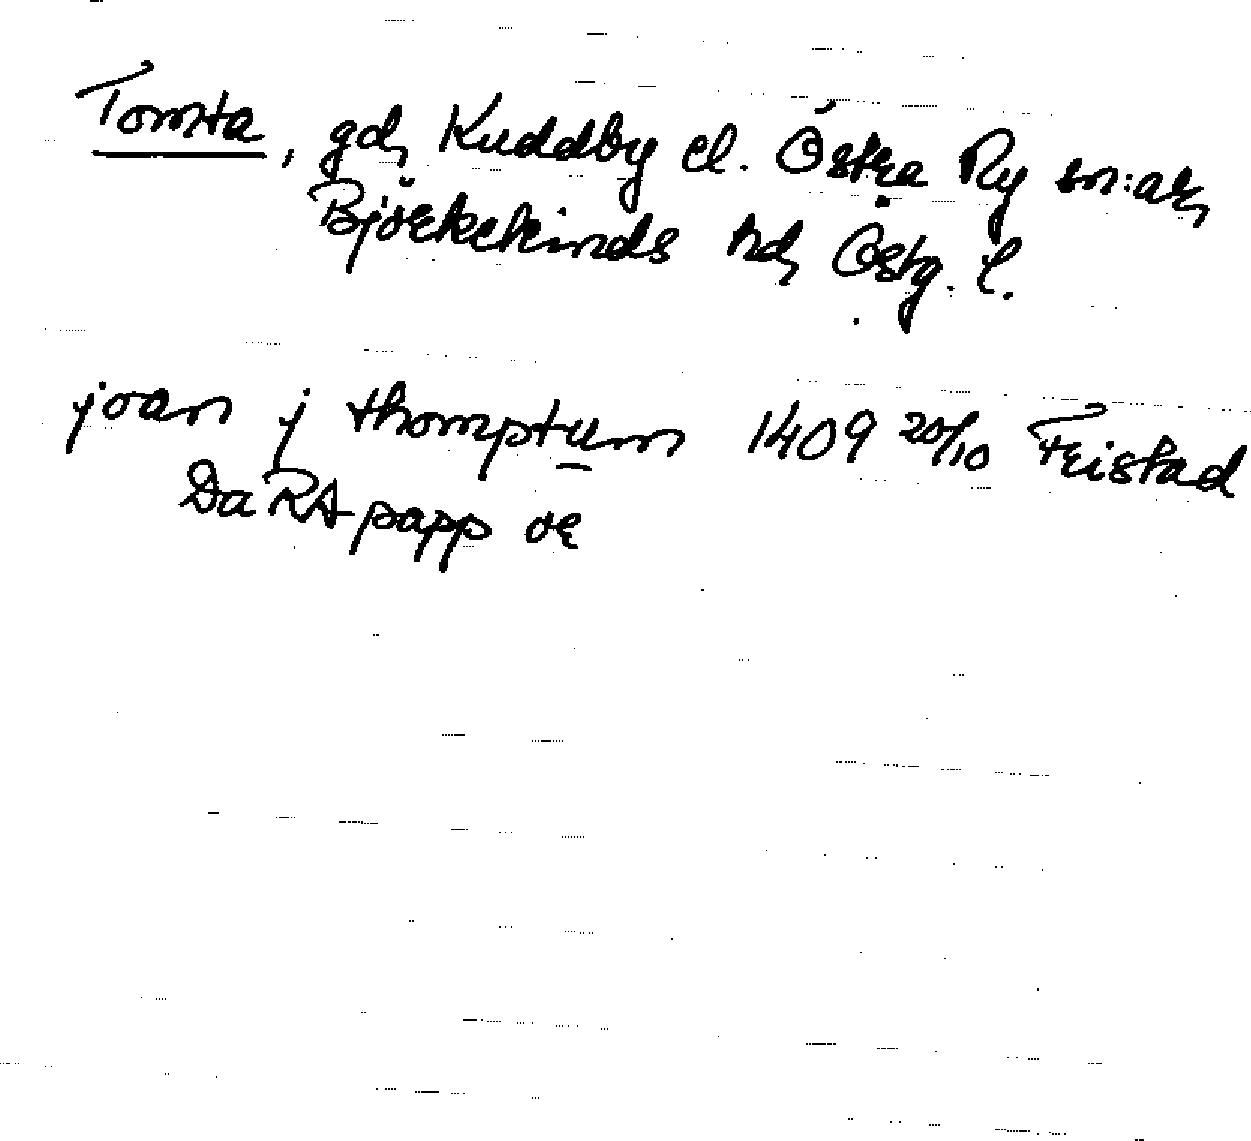 Tomta, gd, Kuddby el. Östra Ry sn:ar,
Björkekinds hd, Östg. l.
joan j thomptum 1409 20/10 Fristad
Da RA papp or